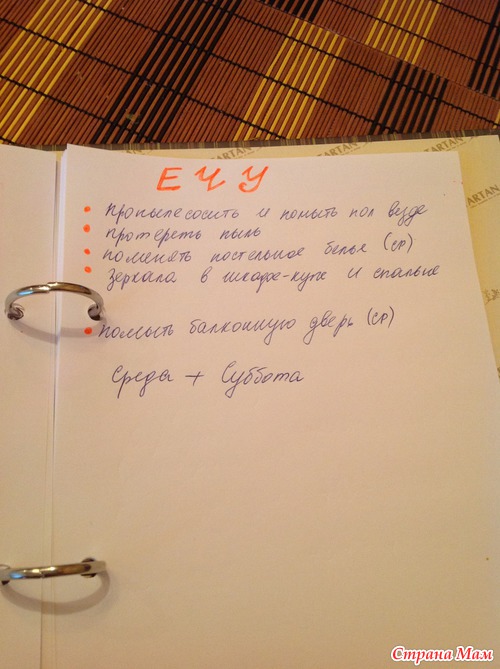 TARTAN
TARTAN
ЕЧУ
• пропылесосить и помыть пол везде
• протереть пыль
• поменять постельное белье (ср)
• зеркала в шкафе-купе и спальне
• помыть балконную дверь (ср)
Среда + Суббота
Страна Мам